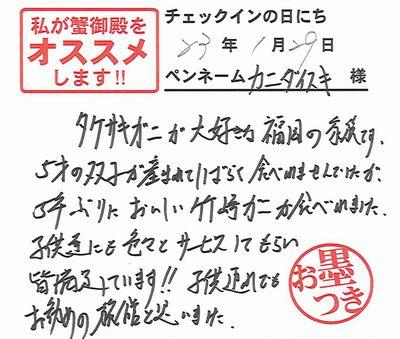 私が蟹御殿を
オススメ
します!!
チェックインの日にち
23年 1月29日
ペンネーム カニダイスキ 様
タケザキガニが大好きな福岡の家族です。
5才の双子が産まれてしばらく食べれませんでしたが、
5年ぶりにおいしい竹崎ガニが食べれました。
子供達にも色々とサービスしてもらい
皆満足しています!! 子供連れでも
お勧めの旅館と思いました。
お墨つき